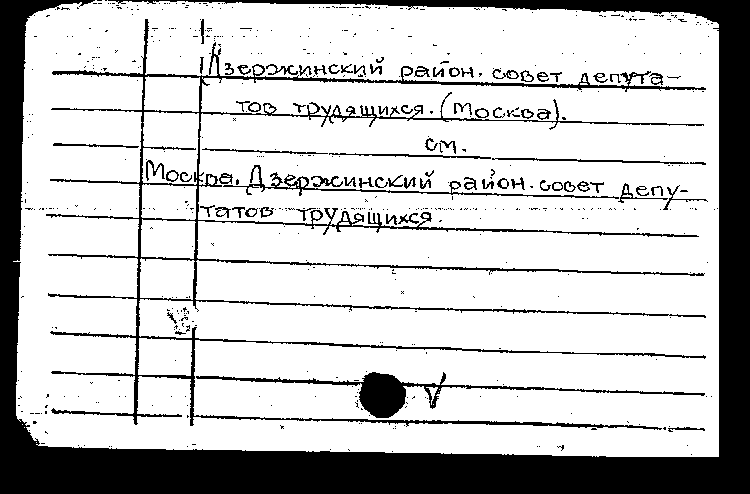 Дзержинский район. совет депута-
тов трудящихся. (Москва).
см.
Москва. Дзержинский район. совет депу-
татов трудящихся.